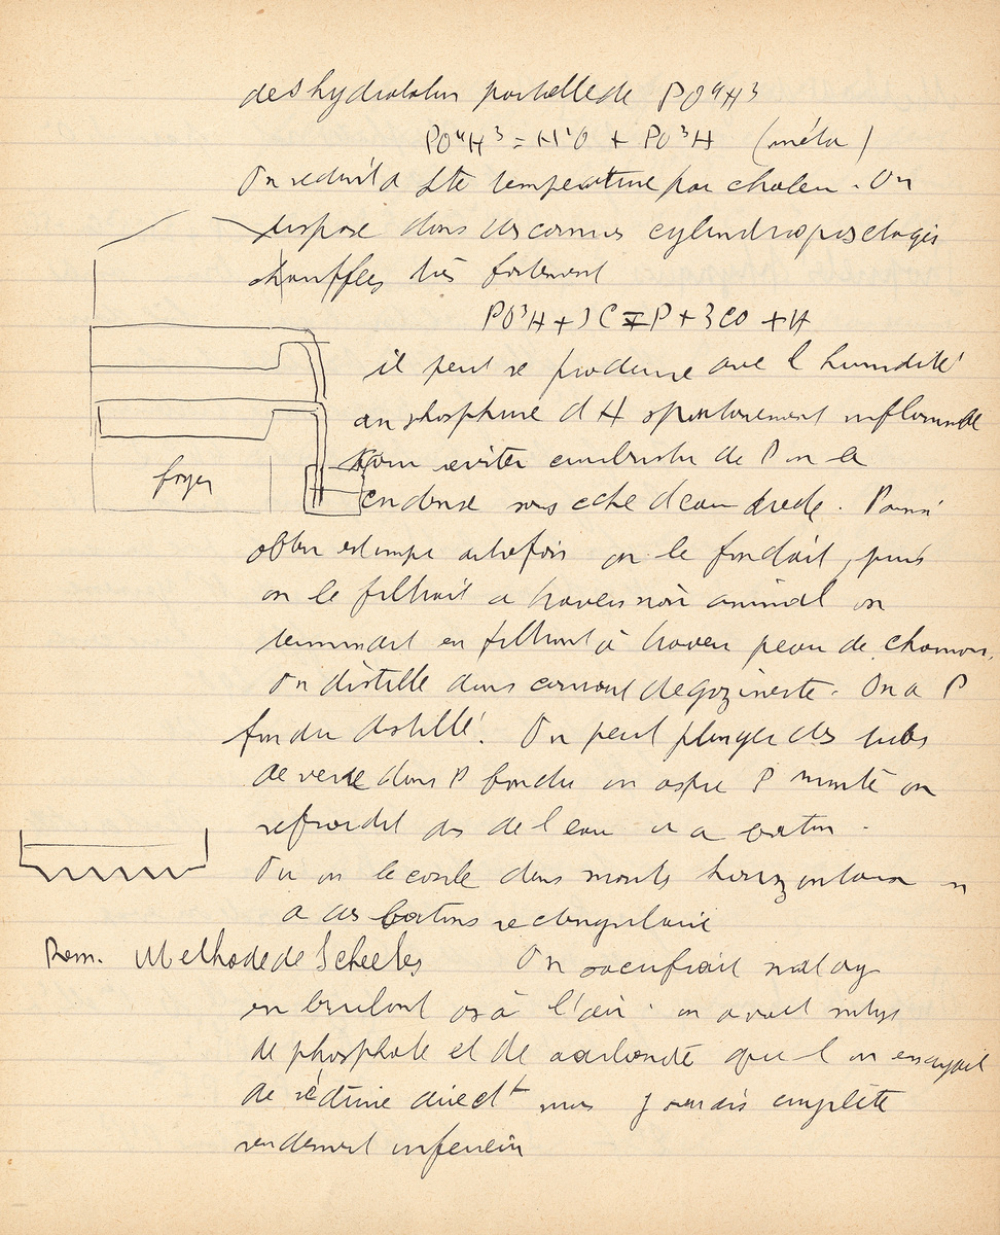 deshydratation partielle de PO⁴H³
PO⁴H³ = H²O + PO³H (méta)
On reduit a hte temperature par chaleu. On
dispose dans des cornues cylindriques etagés
chauffees très fortement
PO³H + 3C = P + 3CO + H
il peut se produire avec l humidité
un phosphure d H spontanement inflammable
foyer
Pour eviter combustion de P on le
condense sous cche d'eau froide. Pour
obten est impur autrefois on le fondait, puis
on le filtrait a travers noir animal on
terminait en filtrant à travers peau de chamois.
On distille dans courant de gaz inerte. On a P
fondu distillé. On peut plonger des tubes
de verre dans P fondu on aspire P monte on
refroidit ds de l eau on a baton.
Ou on le coule dans moules horizontaux on
a des batons rectangulaire
Rem. Methode de Scheeles On sacrifiait mat org
en brulant os à l'air. on avait melange
de phosphate et de carbonate que l on essayait
de réduire direct^t mais jamais complète
rendement inferieur